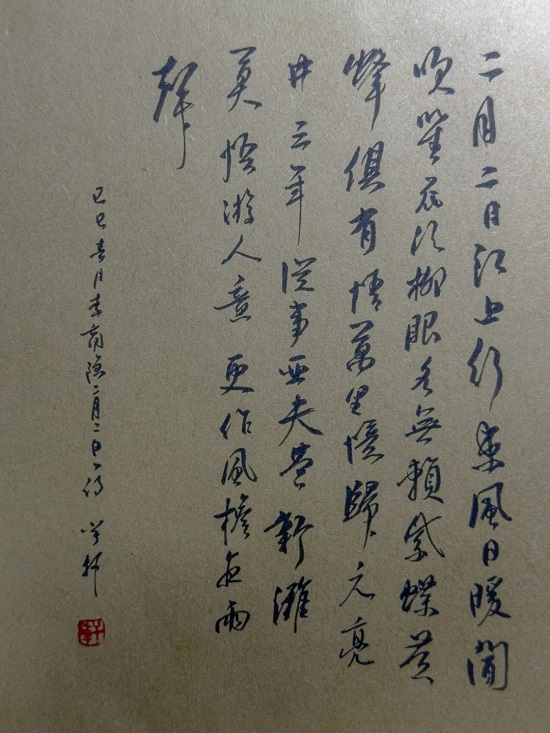 二月二日江上行東風日暖聞
吹笙花須柳眼各無賴紫蝶黃
蜂俱有情萬里憶歸元亮
井三年從事亞夫營新灘
莫悟游人意更作風檐夜雨
聲
己巳春月李商隐二月二日一诗